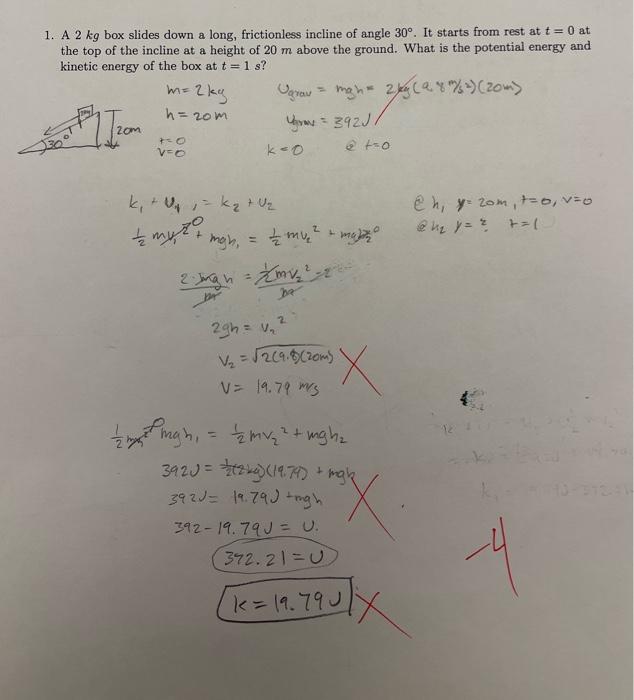 1. A 2 kg box slides down a long, frictionless incline of angle 30°. It starts from rest at t = 0 at
the top of the incline at a height of 20 m above the ground. What is the potential energy and
kinetic energy of the box at t = 1 s?
m = 2kg
h = 20m
t=0
v=0
20m
30°
Ugrav = mgh = 2kg(9.8 m/s²)(20m)
Ugrav = 392J
k=0 @ t=0
k₁ + U₁ = k₂ + U₂
@ h₁ y= 20m, t=0, v=0
½ mv₁² 0 + mgh₁ = ½ mv₂² + mgh₂ 0
@ h₂ y= ? t=1
2·mgh = ½mv₂² ·2
m m
2gh = v₂²
V₂ = √2(9.8)(20m)
V= 19.79 m/s
½mv² 0 mgh₁ = ½mv₂² + mgh₂
392J = ½(2kg)(19.79) + mgh
392J = 19.79J + mgh
392 - 19.79J = U.
372.21 = U
k = 19.79J
-4